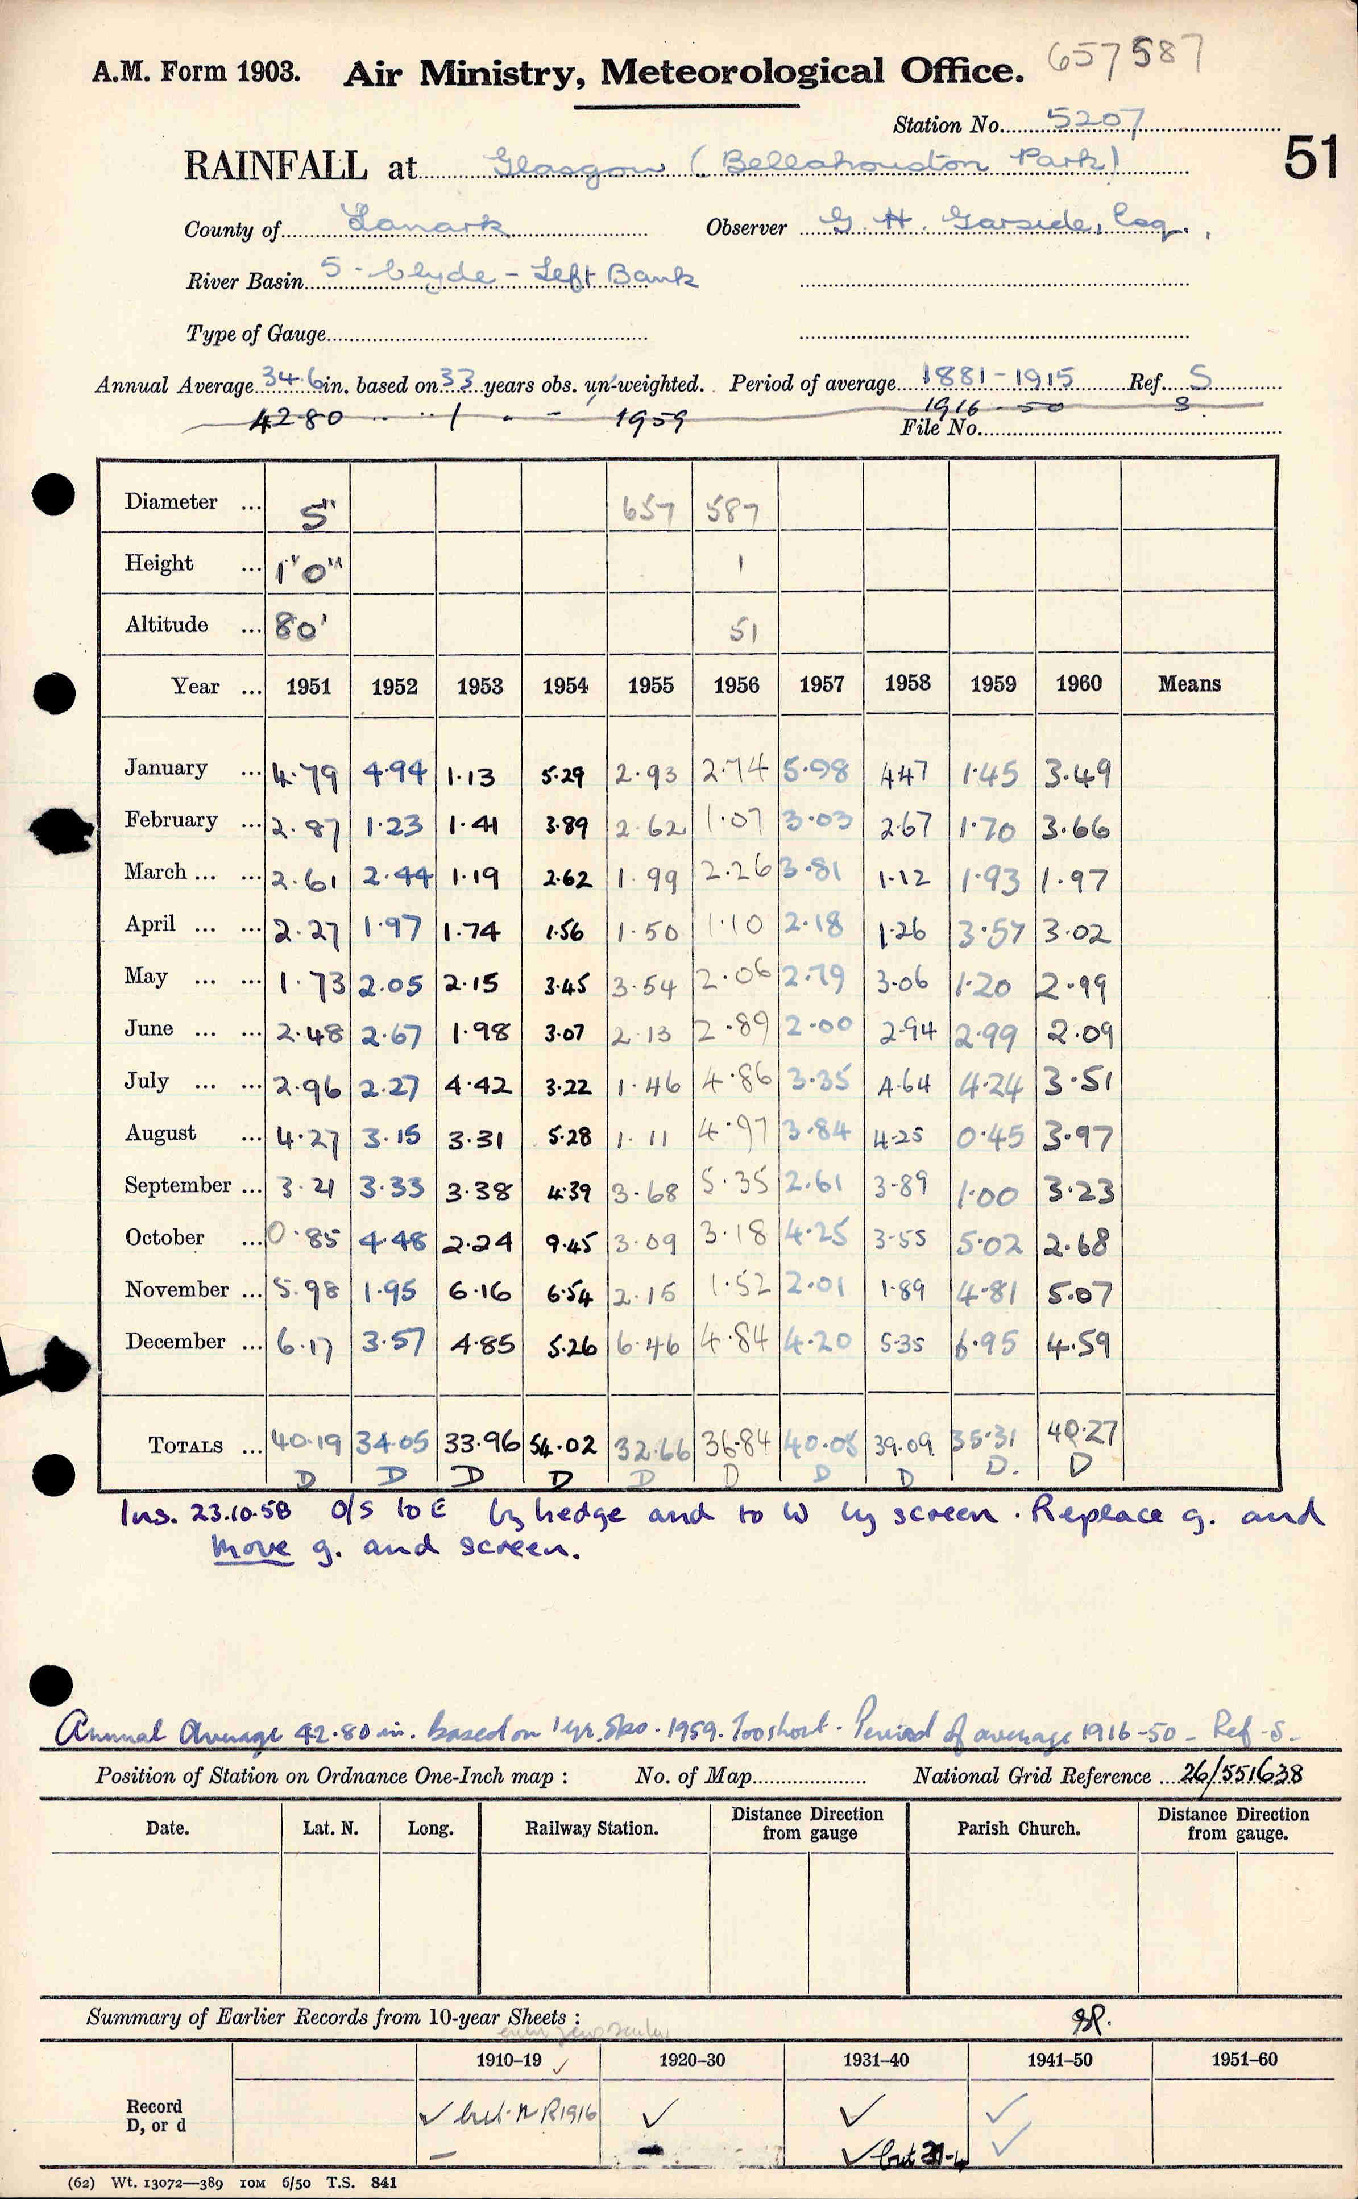 657587
A.M. Form 1903. Air Ministry, Meteorological Office.
Station No. 5207
51
RAINFALL at Glasgow (Bellahouston Park)
County of Lanark Observer G. H. Garside, Esq.,
River Basin 5 - Clyde - Left Bank
Type of Gauge
Annual Average 34.6 in. based on 33 years obs. un-weighted. Period of average 1881-1915 Ref. S
42.80 1 1959 1916-50 S
File No.
Diameter ... 5" 657 587
Height ... 1'0" 1
Altitude ... 80' 51
Year ... 1951 1952 1953 1954 1955 1956 1957 1958 1959 1960 Means
January ... 4.79 4.94 1.13 5.29 2.93 2.74 5.98 4.47 1.45 3.49
February ... 2.87 1.23 1.41 3.89 2.62 1.07 3.03 2.67 1.70 3.66
March ... ... 2.61 2.44 1.19 2.62 1.99 2.26 3.81 1.12 1.93 1.97
April ... ... 2.27 1.97 1.74 1.56 1.50 1.10 2.18 1.26 3.57 3.02
May ... ... 1.73 2.05 2.15 3.45 3.54 2.06 2.79 3.06 1.20 2.99
June ... ... 2.48 2.67 1.98 3.07 2.13 2.89 2.00 2.94 2.99 2.09
July ... ... 2.96 2.27 4.42 3.22 1.46 4.86 3.35 4.64 4.24 3.51
August ... 4.27 3.15 3.31 5.28 1.11 4.97 3.84 4.25 0.45 3.97
September ... 3.21 3.33 3.38 4.39 3.68 5.35 2.61 3.89 1.00 3.23
October ... 0.85 4.48 2.24 9.45 3.09 3.18 4.25 3.55 5.02 2.68
November ... 5.98 1.95 6.16 6.54 2.15 1.52 2.01 1.89 4.81 5.07
December ... 6.17 3.57 4.85 5.26 6.46 4.84 4.20 5.35 6.95 4.59
TOTALS ... 40.19 34.05 33.96 54.02 32.66 36.84 40.05 39.09 35.31 40.27
D D D D D D D D D. D
Ins. 23.10.58 O/S to E by hedge and to W by screen. Replace g. and
move g. and screen.
Annual Average 42.80 in. based on 1 yr. obs. 1959. Too short. Period of average 1916-50 - Ref - S -
Position of Station on Ordnance One-Inch map : No. of Map National Grid Reference 26/551638
Date. Lat. N. Long. Railway Station. Distance Direction from gauge Parish Church. Distance Direction from gauge.
Summary of Earlier Records from 10-year Sheets :
1910-19 ✓ 1920-30 1931-40 1941-50 1951-60
Record D, or d ✓ but R1916 ✓ ✓ ✓
- - ✓ but ✓
(62) Wt. 13072—389 10M 6/50 T.S. 841